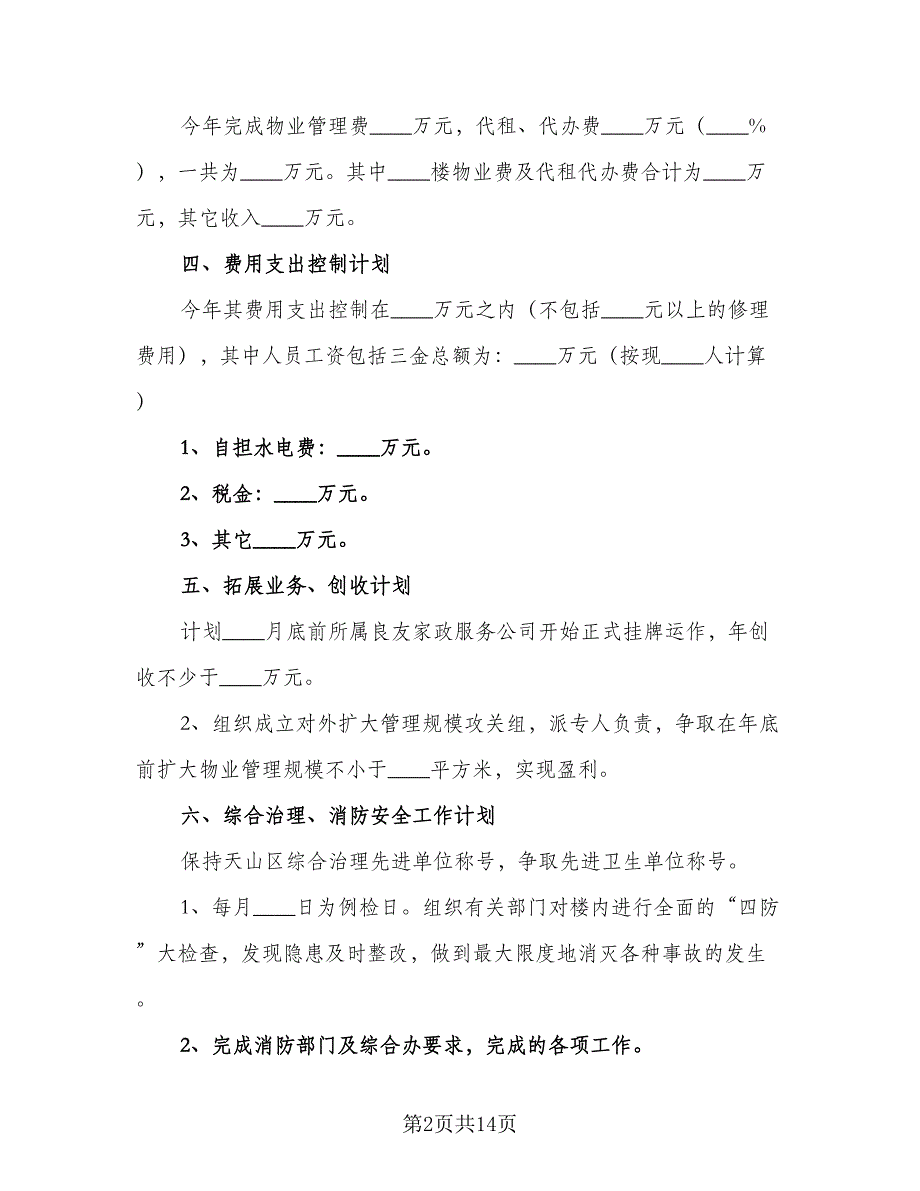 今年完成物业管理费____万元，代租、代办费____万元（____%
），一共为____万元。其中____楼物业费及代租代办费合计为____万
元，其它收入____万元。
四、费用支出控制计划
今年其费用支出控制在____万元之内（不包括____元以上的修理
费用），其中人员工资包括三金总额为：____万元（按现____人计算
）
1、自担水电费：____万元。
2、税金：____万元。
3、其它____万元。
五、拓展业务、创收计划
计划____月底前所属良友家政服务公司开始正式挂牌运作，年创
收不少于____万元。
2、组织成立对外扩大管理规模攻关组，派专人负责，争取在年底
前扩大物业管理规模不小于____平方米，实现盈利。
六、综合治理、消防安全工作计划
保持天山区综合治理先进单位称号，争取先进卫生单位称号。
1、每月____日为例检日。组织有关部门对楼内进行全面的“四防
”大检查，发现隐患及时整改，做到最大限度地消灭各种事故的发生
。
2、完成消防部门及综合办要求，完成的各项工作。
第2页共14页